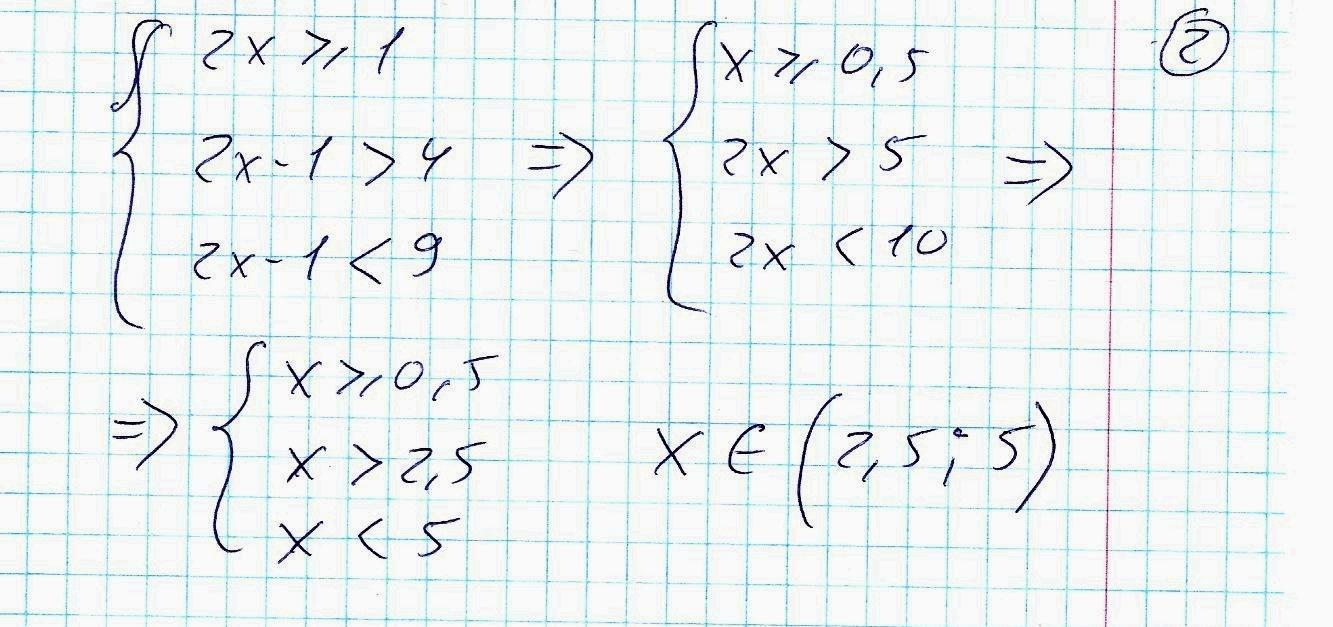 2x ⩾ 1
2x-1 > 4 =>
2x-1 < 9
x ⩾ 0,5
2x > 5 =>
2x < 10
2
=> x ⩾ 0,5
x > 2,5
x < 5
x ∈ (2,5; 5)